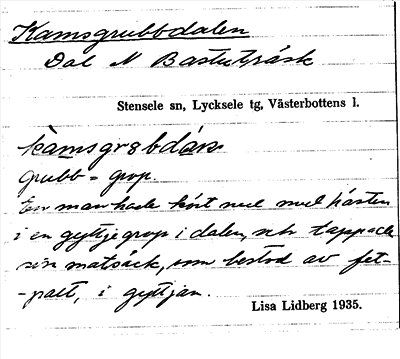 Kamsgrubbdalen
Dal N Bastuträsk
Stensele sn, Lycksele tg, Västerbottens l.
kamsgrubbdarn
grubb = grop.
En man hade kört ned med hästen
i en gyttjegrop i dalen, och tappade
sin matsäck, som bestod av fet-
-palt, i gyttjan.
Lisa Lidberg 1935.